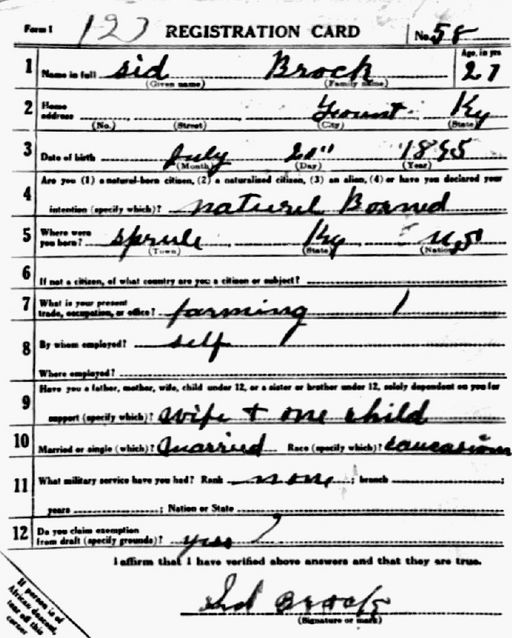 Form 1 127 REGISTRATION CARD No. 58
1 Name in full Sid Brock Age, in yrs 27
(Given name) (Family name)
2 Home address Ky
(No.) (Street) (City) (State)
3 Date of birth July 21" 1895
(Month) (Day) (Year)
4 Are you (1) a natural-born citizen, (2) a naturalized citizen, (3) an alien, (4) or have you declared your
intention (specify which)? naturel Borned
5 Where were you born? Sprule Ky U S
(Town) (State) (Nation)
6 If not a citizen, of what country are you a citizen or subject?
7 What is your present trade, occupation, or office? farming
8 By whom employed? self
Where employed?
9 Have you a father, mother, wife, child under 12, or a sister or brother under 12, solely dependent on you for
support (specify which)? wife + one child
10 Married or single (which)? Married Race (specify which)? Caucasion
11 What military service have you had? Rank none ; branch ;
years ; Nation or State
12 Do you claim exemption from draft (specify grounds)? yes
I affirm that I have verified above answers and that they are true.
Sid Brock
(Signature or mark)
If person is of
African descent,
tear off this
corner